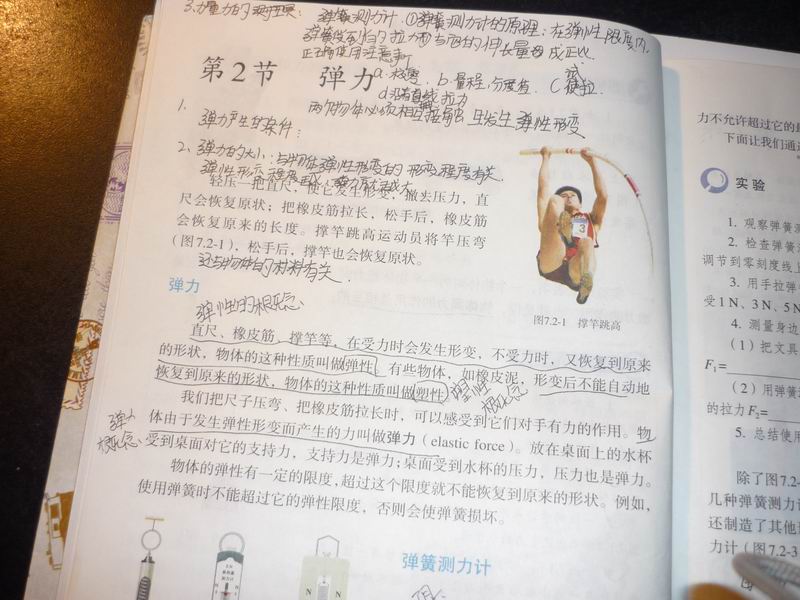 3.力量力的测工具: 弹簧测力计. ①弹簧测力计的原理:在弹性限度内,
弹簧受到的拉力和与它的伸长量成正比.
正确使用注意事项
a. b.量程,分度值. C 试拉.
d.沿直线拉力
第2节 弹力
1.
弹力产生的条件: 两个物体必须相互接触 且发生弹性形变
2、弹力的大小:与物体弹性形变的形变程度有关.
弹性形变程度越大,弹力越大
轻压一把直尺,使它发生形变,撤去压力,直
尺会恢复原状;把橡皮筋拉长,松手后,橡皮筋
会恢复原来的长度。撑竿跳高运动员将竿压弯
(图7.2-1),松手后,撑竿也会恢复原状。
还与物体的材料有关.
3
图7.2-1 撑竿跳高
弹力
弹性的概念、
直尺、橡皮筋、撑竿等,在受力时会发生形变,不受力时,又恢复到原来
的形状,物体的这种性质叫做弹性。有些物体,如橡皮泥,形变后不能自动地
恢复到原来的形状,物体的这种性质叫做塑性。
塑性
概念
我们把尺子压弯、把橡皮筋拉长时,可以感受到它们对手有力的作用。物
弹力
概念、
体由于发生弹性形变而产生的力叫做弹力(elastic force)。放在桌面上的水杯
受到桌面对它的支持力,支持力是弹力;桌面受到水杯的压力,压力也是弹力。
物体的弹性有一定的限度,超过这个限度就不能恢复到原来的形状。例如,
使用弹簧时不能超过它的弹性限度,否则会使弹簧损坏。
弹簧测力计
N N
力不允许超过它的
下面让我们通
实验
1. 观察弹簧测
2. 检查弹簧
调节到零刻度线上
3. 用手拉弹
受1 N、3 N、5 N
4. 测量身边
(1)把文具
F₁=
(2)用弹
的拉力F₂=
5. 总结使用
除了图7.2-
几种弹簧测力计
还制造了其他
力计(图7.2-3